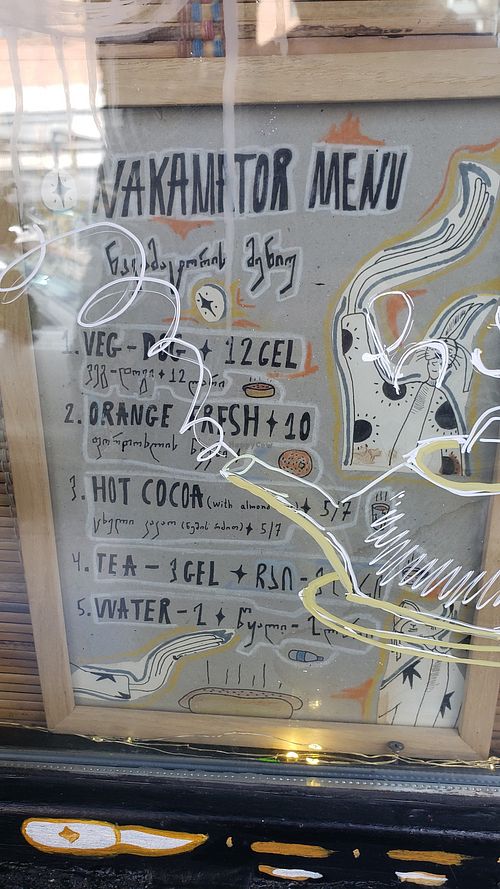 NAKAMATOR MENU
ნაკამატორის მენიუ
1. VEG-DOG ✦ 12 GEL
ვეგ-დოგი ✦ 12 ლარი
2. ORANGE FRESH ✦ 10
ფორთოხლის
3. HOT COCOA (with almond 5/7
ცხელი კაკაო (ნუშის რძით) ✦ 5/7
4. TEA - 3 GEL ✦ ჩაი -
5. WATER - 2 ✦ წყალი - 2